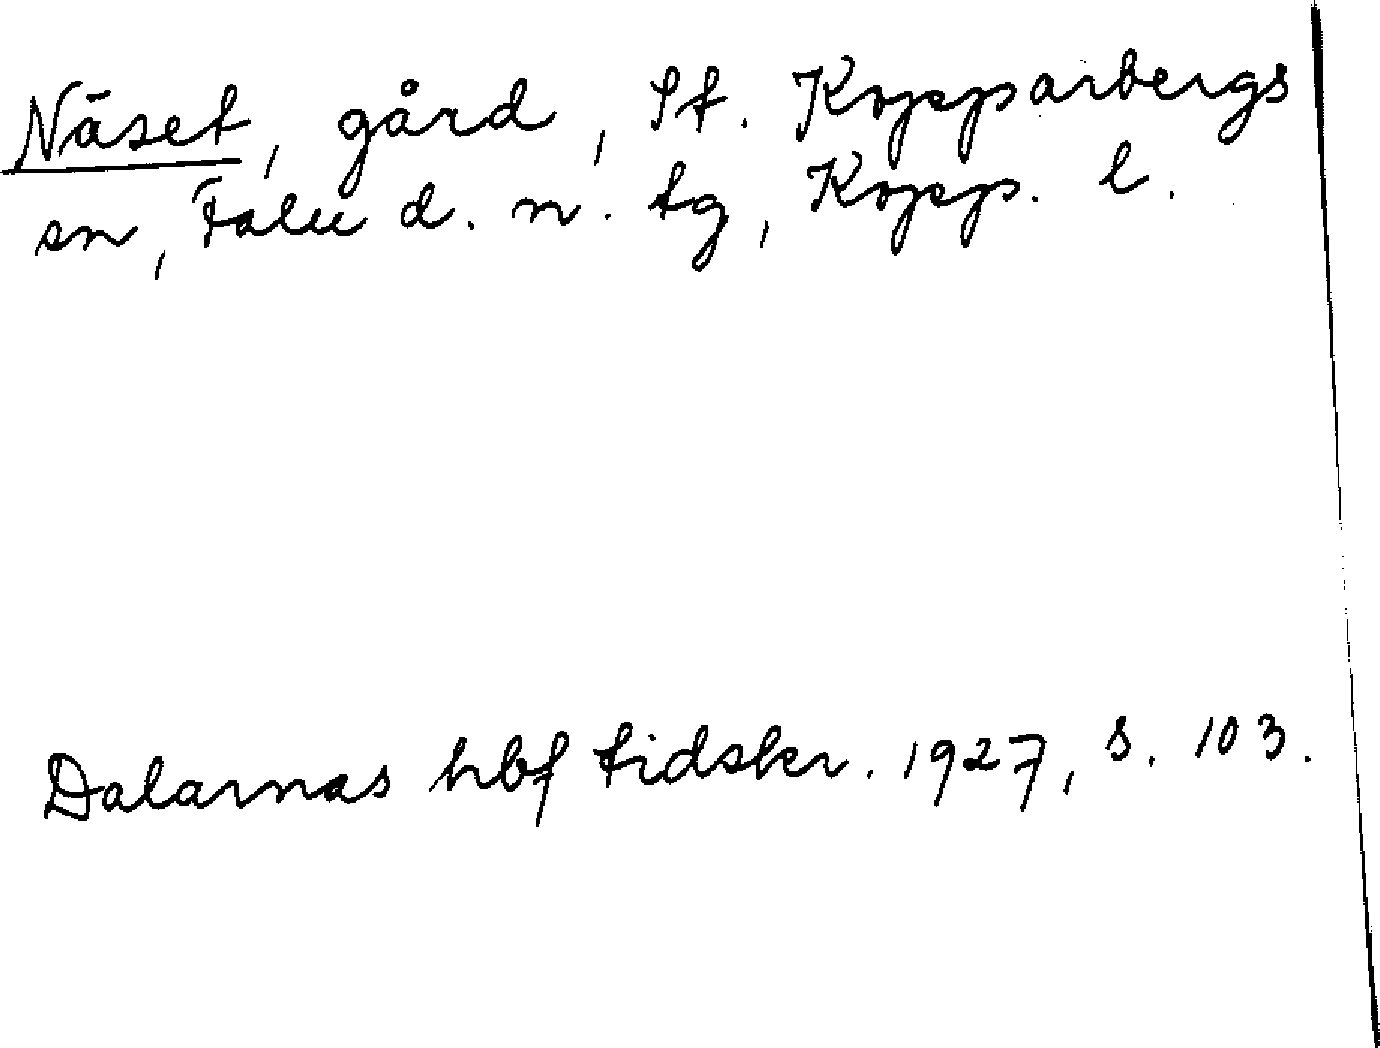 Näset, gård, St. Kopparbergs
sn, Falu d. n. tg, Kopp. l.
Dalarnas hbf tidskr. 1927, s. 103.